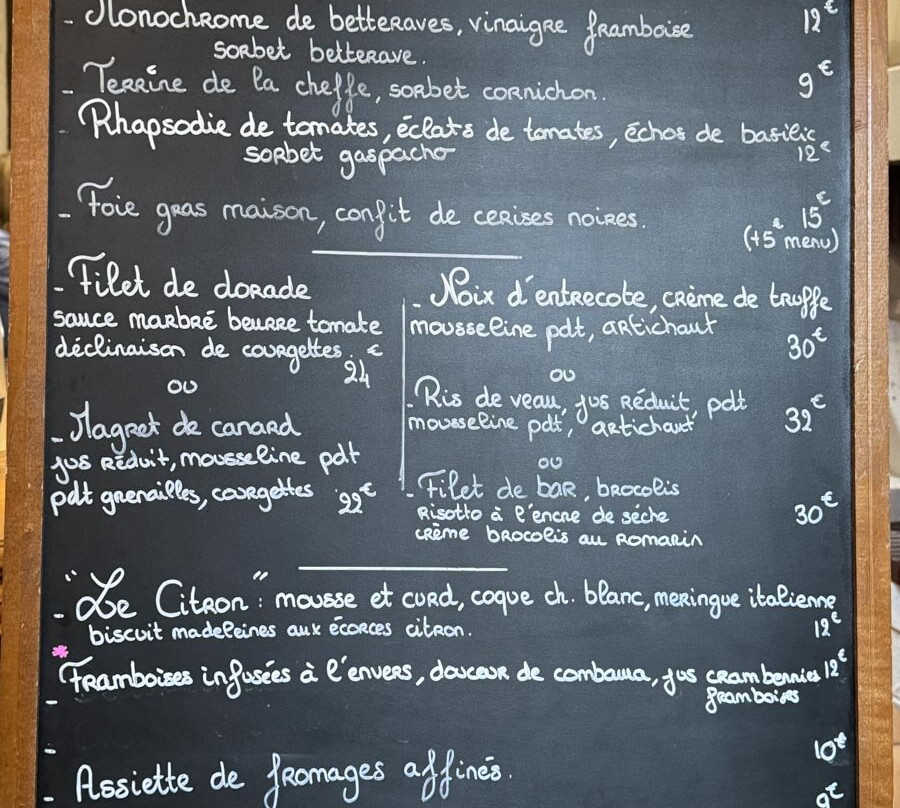 - Monochrome de betteraves, vinaigre framboise 12€
sorbet betterave.
- Terrine de la cheffe, sorbet cornichon. 9€
- Rhapsodie de tomates, éclats de tomates, échos de basilic
sorbet gaspacho 12€
- Foie gras maison, confit de cerises noires. 15€
(+5€ menu)
- Filet de dorade
sauce marbré beurre tomate
déclinaison de courgettes. 24€
ou
- Magret de canard
jus réduit, mousseline pdt
pdt grenailles, courgettes 22€
- Noix d'entrecote, crème de truffe
mousseline pdt, artichaut 30€
ou
- Ris de veau, jus réduit, pdt
mousseline pdt, artichaut 32€
ou
- Filet de bar, brocolis
Risotto à l'encre de séche 30€
crème brocolis au romarin
- "Le Citron": mousse et curd, coque ch. blanc, meringue italienne
biscuit madeleines aux écorces citron. 12€
* - Framboises infusées à l'envers, douceur de combawa, jus crambennies 12€
framboises
-
10€
- Assiette de fromages affinés.
9€